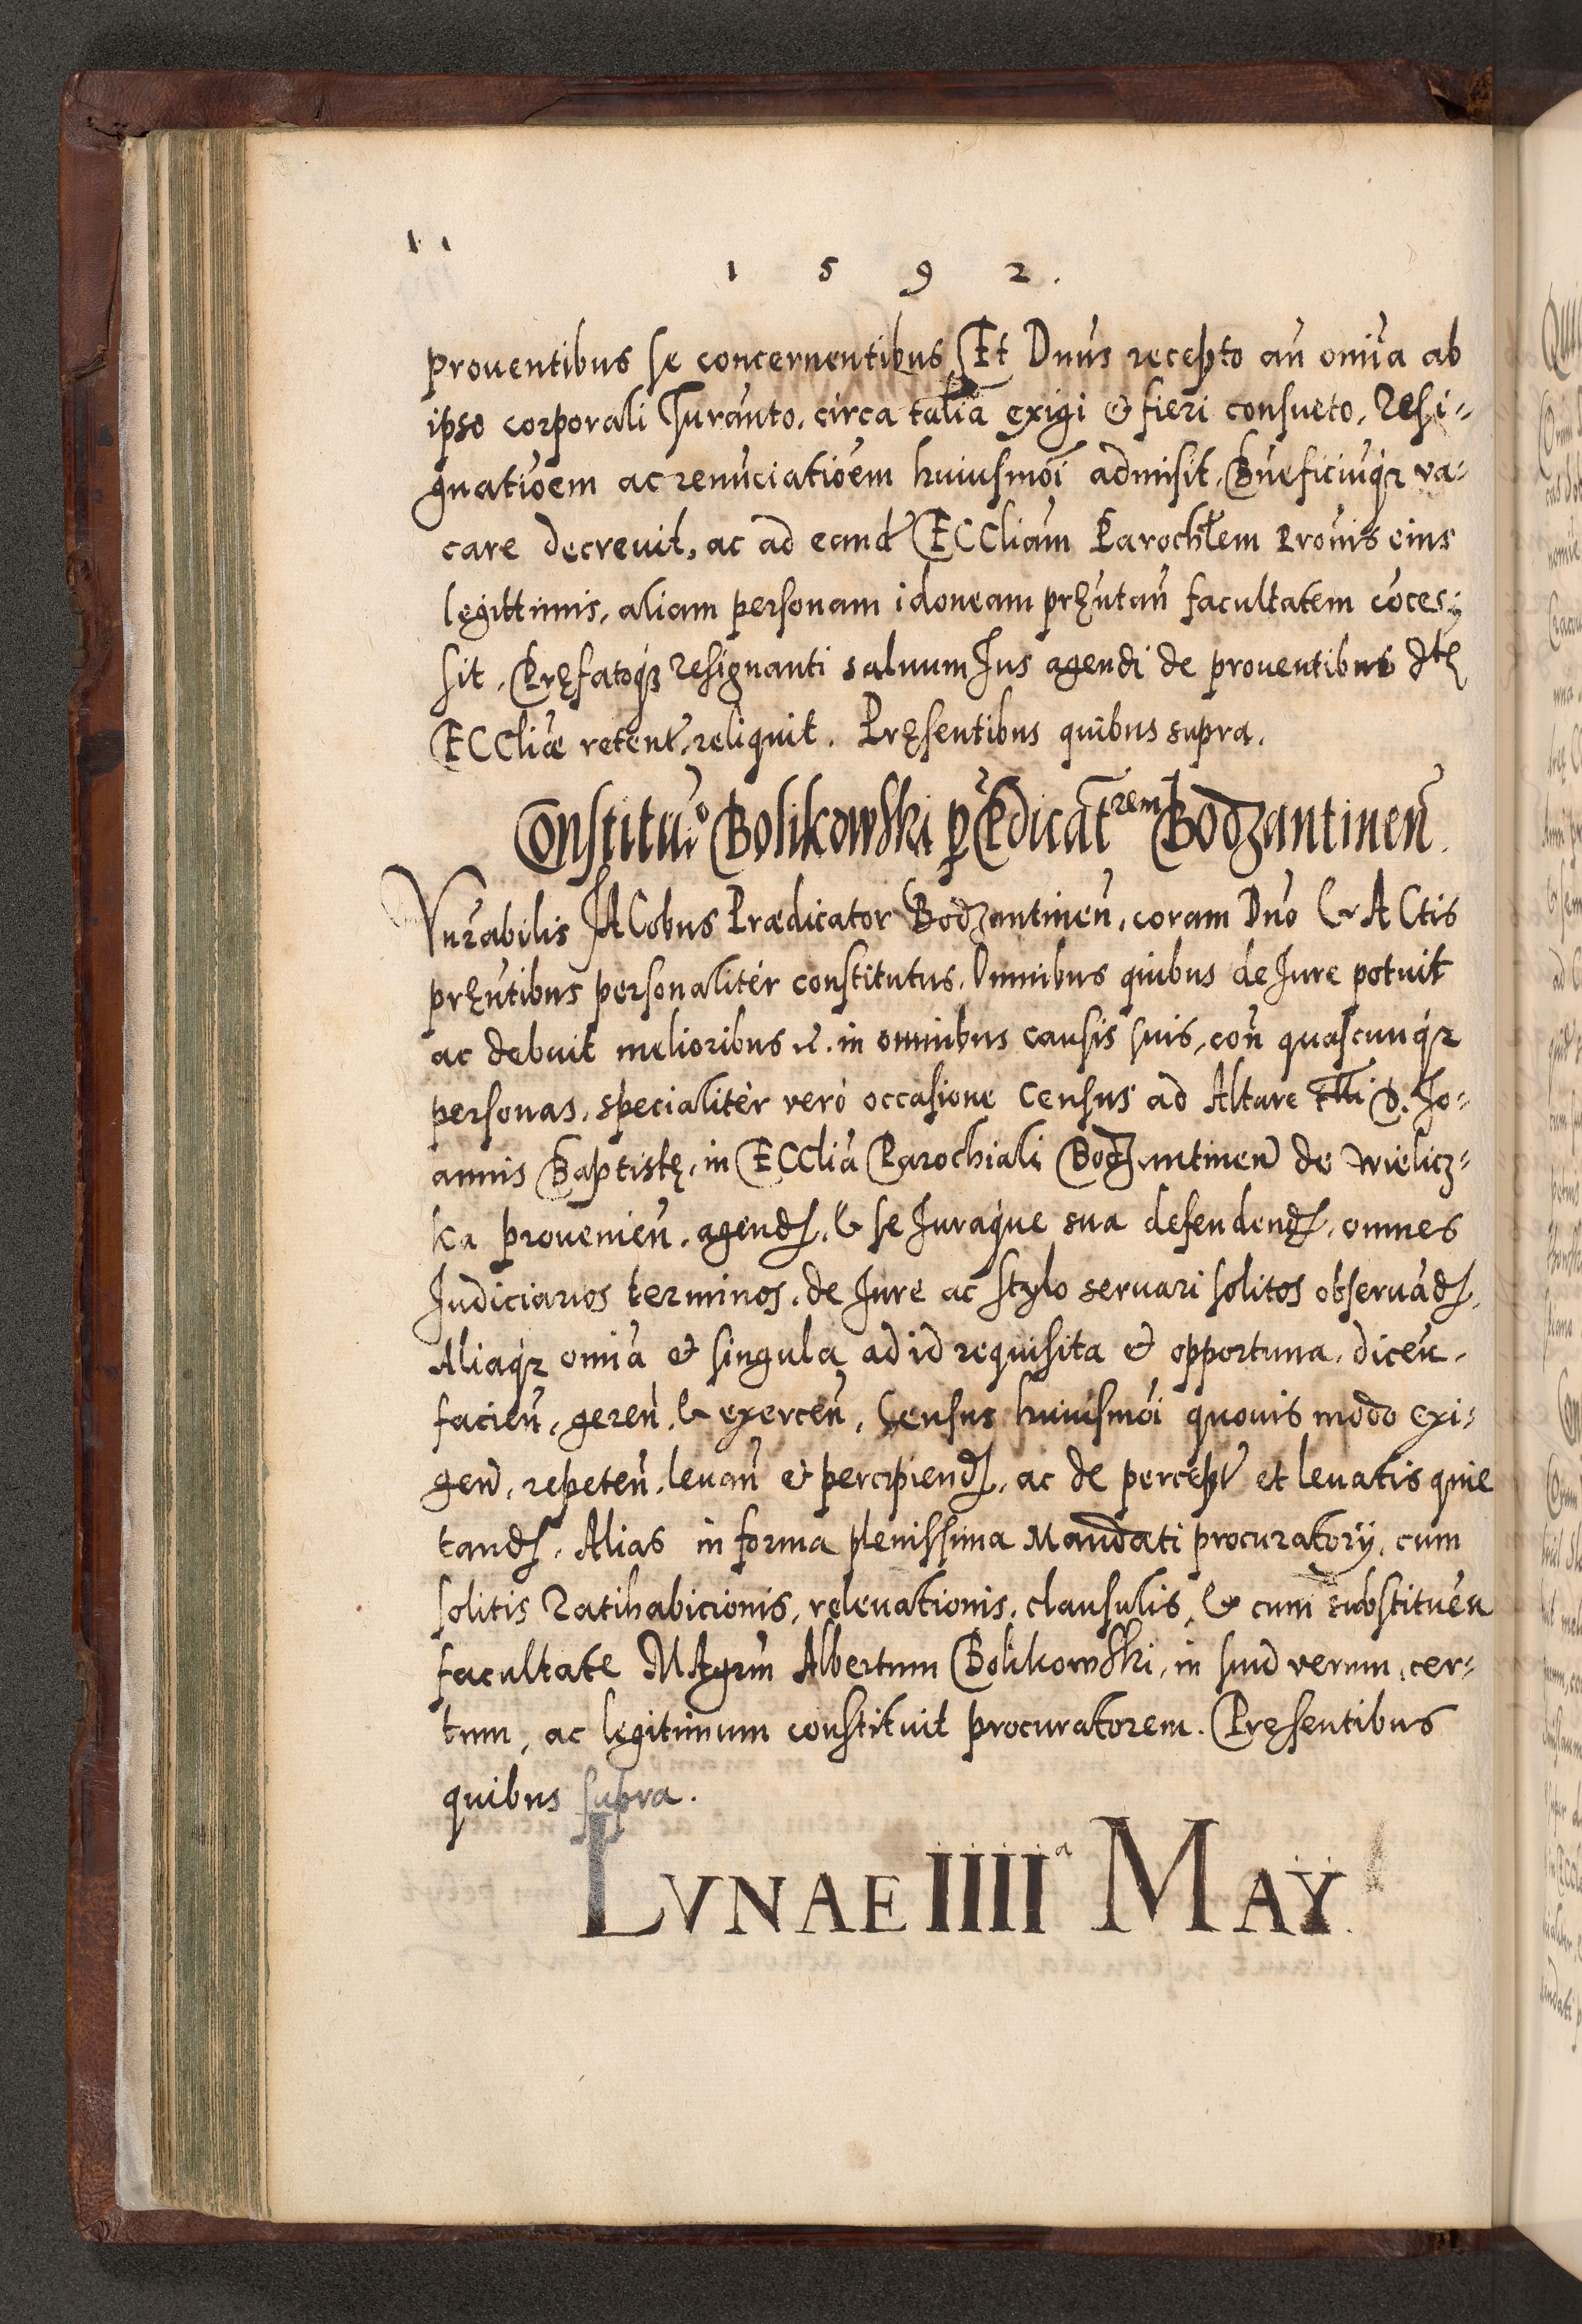 1 5 9 2.
prouentibus se concernentibus. Et Dnus recepto an omia ab
ipso corporali Iuranto, circa talia exigi et fieri consueto, Resi-
gnatioem ac renuciatioem huiusmoi admisit, Bneficiuqz va-
care decreuit, ac ad eand ECCliam Parochlem Prouis eius
legittimis, aliam personam idoneam pręntan facultatem coces-
sit, Pręfatoqz resignanti saluum Ius agendi de prouentibus dtę
ECCliæ retent, reliquit. Pręsentibus quibus supra.
Constituo Bolikowski p Prędicatrem Bodzantinen.
Vnrabilis IACobus Prædicator Bodzantinen, coram Dno & ACtis
pręntibus personaliter constitutus, Omnibus quibus de Iure potuit
ac debuit melioribus etc. in omnibus causis suis, con quascunqz
personas, specialiter vero occasione Census ad Altare tlli S. Jo-
annis Baptistę, in ECClia Parochiali Bodzantinen de Wielicz-
ka prouenien, agend, & se Iuraque sua defendend, omnes
Iudiciarios terminos, de Iure ac stylo seruari solitos obseruad,
Aliaqz omia et singula ad id requisita et opportuna, dicen,
facien, geren, & exercen, Census huiusmoi quouis modo exi-
gen, repeten, leuan et percipiend, ac de percept et leuatis quie
tand, Alias in forma plenissima Mandati procuratorÿ, cum
solitis Ratihabicionis, releuationis, clausulis, & cum substituen
facultate MAgrm Albertum Bolikowski, in suu verum, cer-
tum, ac legitimum constituit procuratorem. Pręsentibus
quibus supra.
LVNAE IIIIa MAŸ.